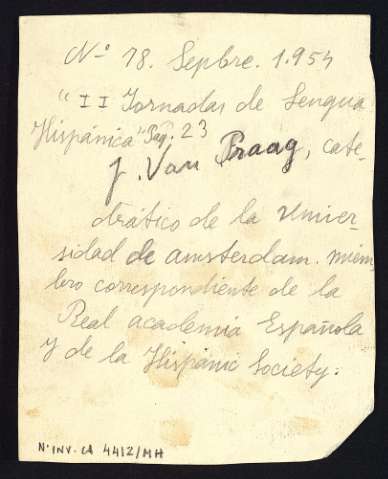 Nº 18. Sepbre. 1.954
"II Jornadas de Lengua
Hispánica" Pag. 23
J. Van Praag, cate-
drático de la Univer-
sidad de amsterdam. miem
bro correspondiente de la
Real academia Española
y de la Hispanic Society.
Nº INV. CA 4412/MH